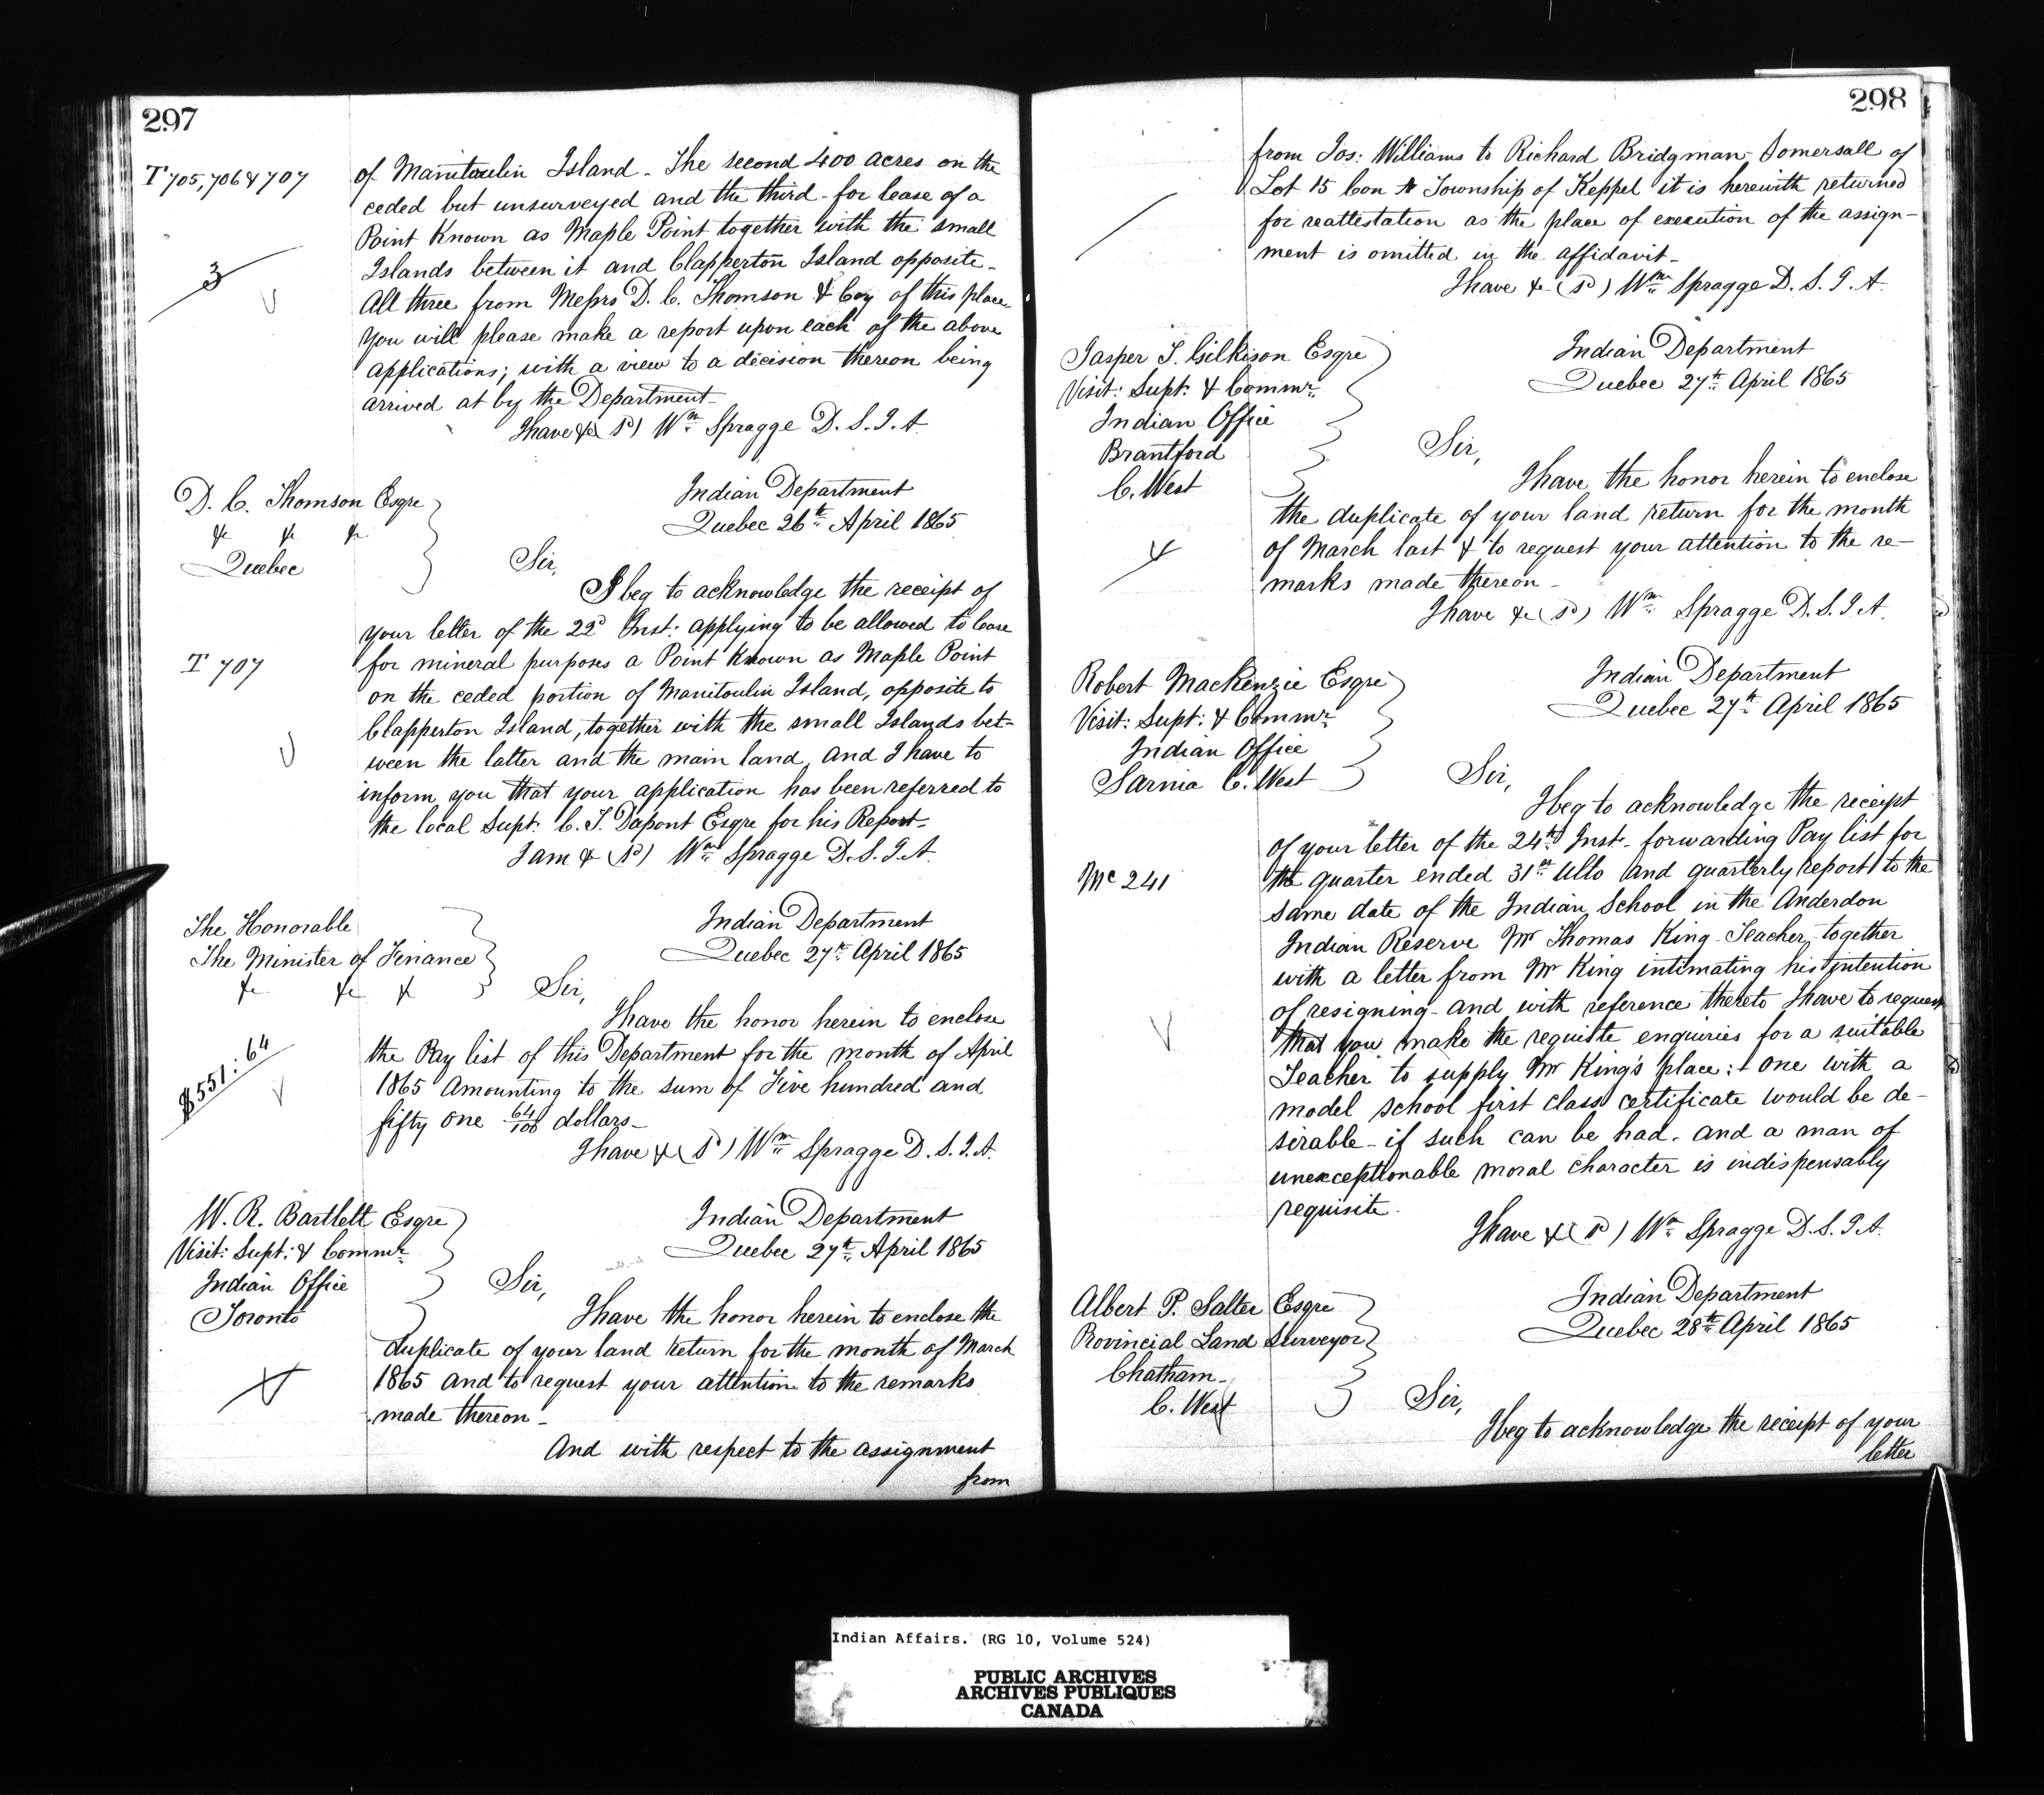 297
T 705, 706 & 707
3
of Manitoulin Island - The second 400 acres on the
ceded but unsurveyed and the third - for lease of a
Point Known as Maple Point together with the small
Islands between it and Clapperton Island opposite -
All three from Messrs D. C. Thomson & Coy of this place
You will please make a report upon each of the above
applications; with a view to a decision thereon being
arrived at by the Department -
I have &c (sd) Wm Spragge D. S. I. A.
D. C. Thomson Esqre
&c &c &c
Quebec
Indian Department
Quebec 26th April 1865
Sir,
I beg to acknowledge the receipt of
T 707
your letter of the 22d Inst: applying to be allowed to lease
for mineral purposes a Point Known as Maple Point
on the ceded portion of Manitoulin Island, opposite to
Clapperton Island, together with the small Islands bet-
ween the latter and the main land, and I have to
inform you that your application has been referred to
the local Supt: C. T. Dupont Esqre for his Report -
I am &c (sd) Wm Spragge D. S. I. A.
The Honorable
The Minister of Finance
&c &c &c
Indian Department
Quebec 27th April 1865
Sir,
I have the honor herein to enclose
$551:64
the Pay list of this Department for the month of April
1865 Amounting to the sum of Five hundred and
fifty one 64/100 dollars -
I have &c (sd) Wm Spragge D. S. I. A.
W. R. Bartlett Esqre
Visit: Supt: & Commr
Indian Office
Toronto
Indian Department
Quebec 27th April 1865
Sir,
I have the honor herein to enclose the
duplicate of your land return for the month of March
1865 and to request your attention to the remarks
made thereon -
And with respect to the assignment
from
298
from Jos: Williams to Richard Bridgman Somersall of
Lot 15 Con Township of Keppel it is herewith returned
for reattestation as the place of execution of the assign-
ment is omitted in the affidavit -
I have &c (sd) Wm Spragge D. S. I. A.
Jasper T. Gilkison Esqre
Visit: Supt: & Commr
Indian Office
Brantford
C. West
Indian Department
Quebec 27th April 1865
Sir,
I have the honor herein to enclose
the duplicate of your land return for the month
of March last & to request your attention to the re-
marks made thereon -
I have &c (sd) Wm Spragge D. S. I. A.
Robert Mackenzie Esqre
Visit: Supt: & Commr
Indian Office
Sarnia C. West
Indian Department
Quebec 27th April 1865
Sir,
I beg to acknowledge the receipt
Mc 241
of your letter of the 24th Inst - forwarding Pay list for
the quarter ended 31st Ulto and quarterly report to the
same date of the Indian School in the Anderdon
Indian Reserve Mr Thomas King - Teacher, together
with a letter from Mr King intimating his intention
of resigning - and with reference thereto I have to request
that you make the requisite enquiries for a suitable
Teacher to supply Mr King's place: - one with a
model school first class certificate would be de-
sirable - if such can be had - and a man of
unexceptionable moral character is indispensably
requisite.
I have &c (sd) Wm Spragge D. S. I. A.
Albert P. Salter Esqre
Provincial Land Surveyor
Chatham -
C. West
Indian Department
Quebec 28th April 1865
Sir,
I beg to acknowledge the receipt of your
letter
Indian Affairs. (RG 10, Volume 524)
PUBLIC ARCHIVES
ARCHIVES PUBLIQUES
CANADA